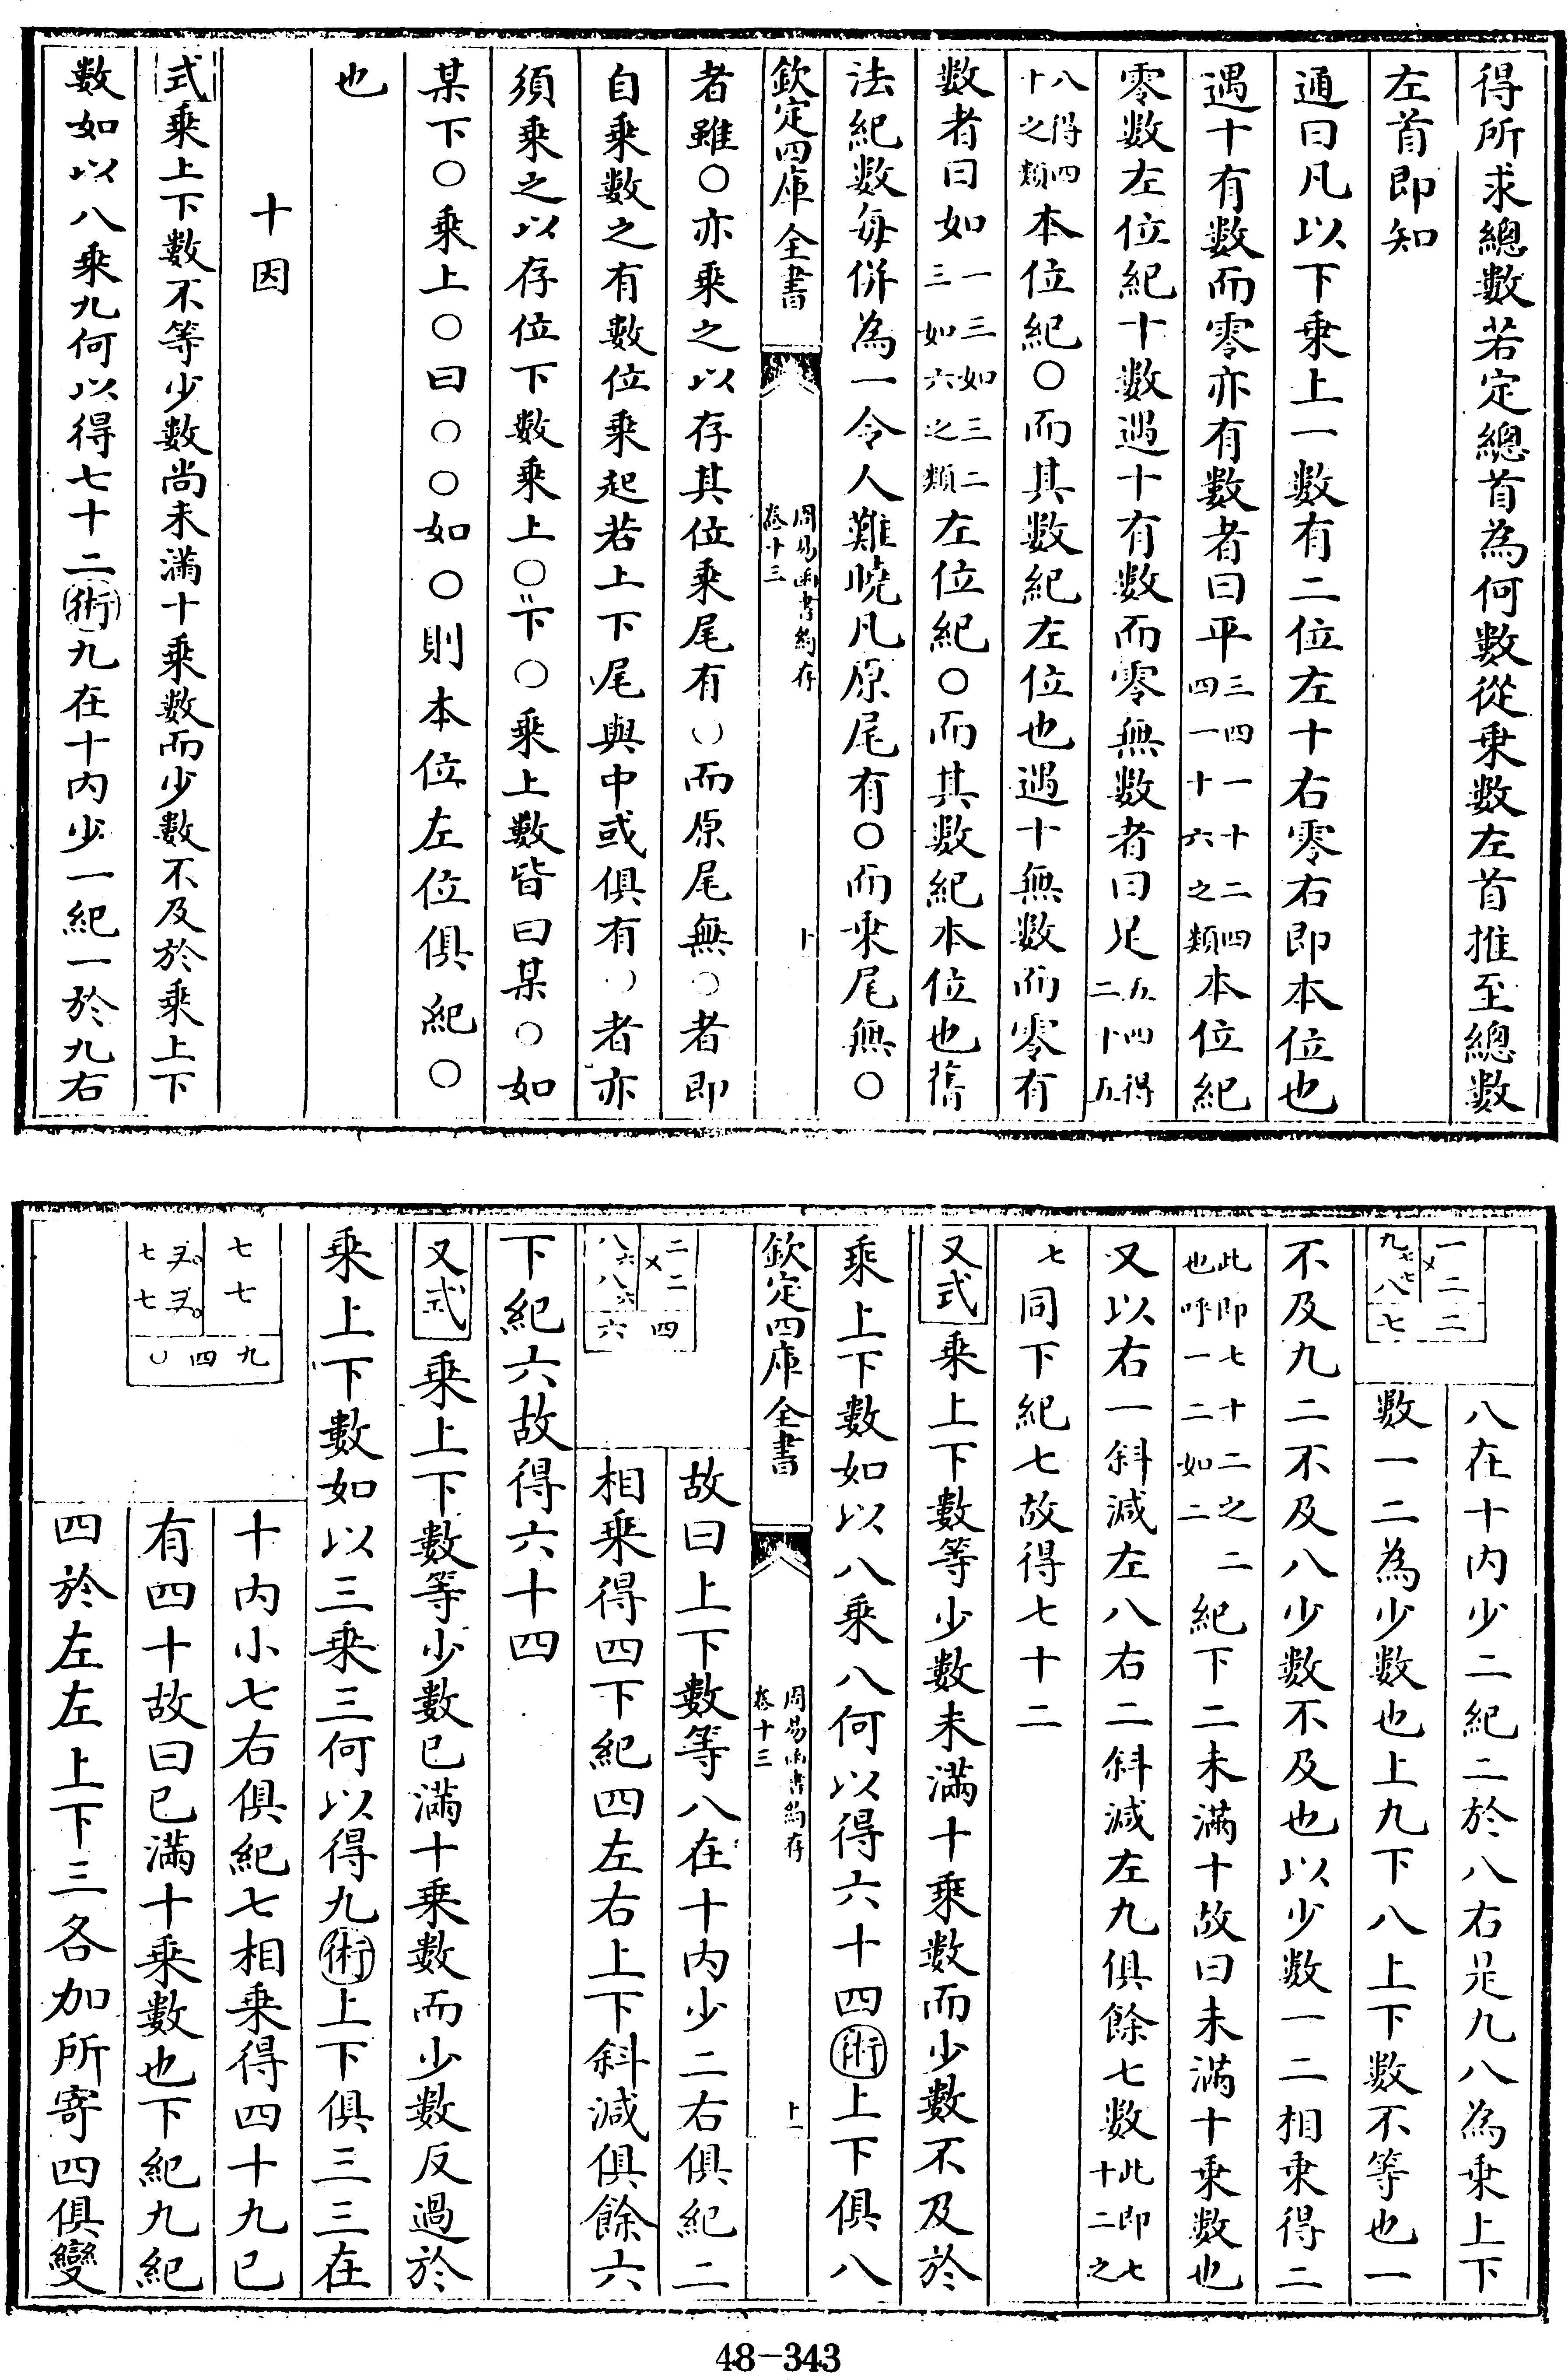 得所求總數若定總首為何數從乗數左首推至總數
左首即知
通曰凡以下乘上一數有二位左十右零右即本位也
遇十有數而零亦有數者曰平三四一十二四四一十六之類本位紀
零數左位紀十數遇十有數而零無數者曰足五四得二十五
八得四十之類本位紀○而其數紀左位也遇十無數而零有
數者曰如一三如三二三如六之類左位紀○而其數紀本位也舊
法紀數每併為一令人難曉凡原尾有○而乗尾無○
欽定四庫全書
周易函書約存
卷十三
十
者雖○亦乘之以存其位乘尾有○而原尾無○者即
自乘數之有數位乘起若上下尾與中或俱有○者亦
須乘之以存位下數乘上○下○乘上數皆曰某○如
某下○乘上○曰○○如○則本位左位俱紀○
也
十因
式乘上下數不等少數尚未滿十乘數而少數不及於乘上下
數如以八乘九何以得七十二術九在十內少一紀一於九右
一二二
九七七八七
八在十內少二紀二於八右是九八為乘上下
數一二為少數也上九下八上下數不等也一
不及九二不及八少數不及也以少數一二相乗得二
此即七十二之二也呼一二如二紀下二未滿十故曰未滿十乗數也
又以右一斜減左八右二斜減左九俱餘七數此即七十二之
七同下紀七故得七十二
又式乘上下數等少數未滿十乘數而少數不及於
乘上下數如以八乘八何以得六十四術上下俱八
欽定四庫全書
周易函書約存
卷十三
十一
二二四
八六八六六
故曰上下數等八在十內少二右俱紀二
相乘得四下紀四左右上下斜減俱餘六
下紀六故得六十四
又式乘上下數等少數已滿十乘數而少數反過於
乘上下數如以三乘三何以得九術上下俱三三在
七七九
七七四○
十內小七右俱紀七相乘得四十九已
有四十故曰已滿十乘數也下紀九紀
四於左左上下三各加所寄四俱變
48-343